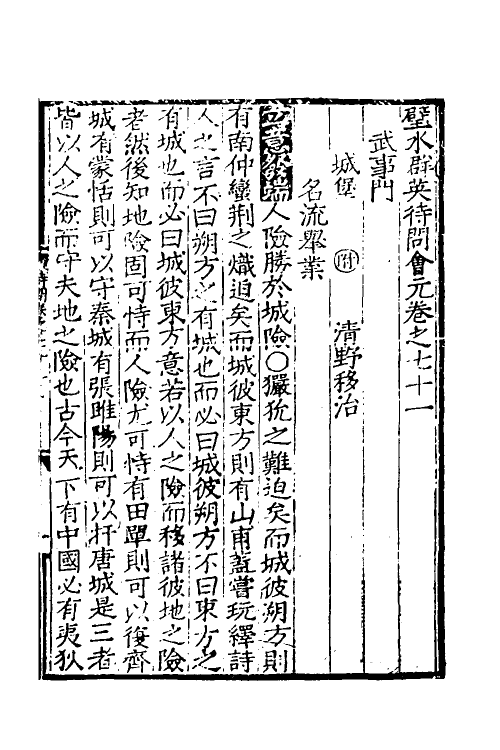 璧水群英待問會元卷之七十一
武事門
城堡 附 清野移治
名流舉業
立意發端人險勝於城險○玁狁之難迫矣而城彼朔方則
有南仲蠻荆之熾迫矣而城彼東方則有山甫蓋嘗玩繹詩
人之言不曰朔方之有城也而必曰城彼朔方不曰東方之
有城也而必曰城彼東方意若以人之險而移諸彼地之險
者然後知地險固可恃而人險尤可恃有田單則可以復齊
城有蒙恬則可以守秦城有張睢陽則可以扞唐城是三者
皆以人之險而守夫地之險也古今天下有中國必有夷狄